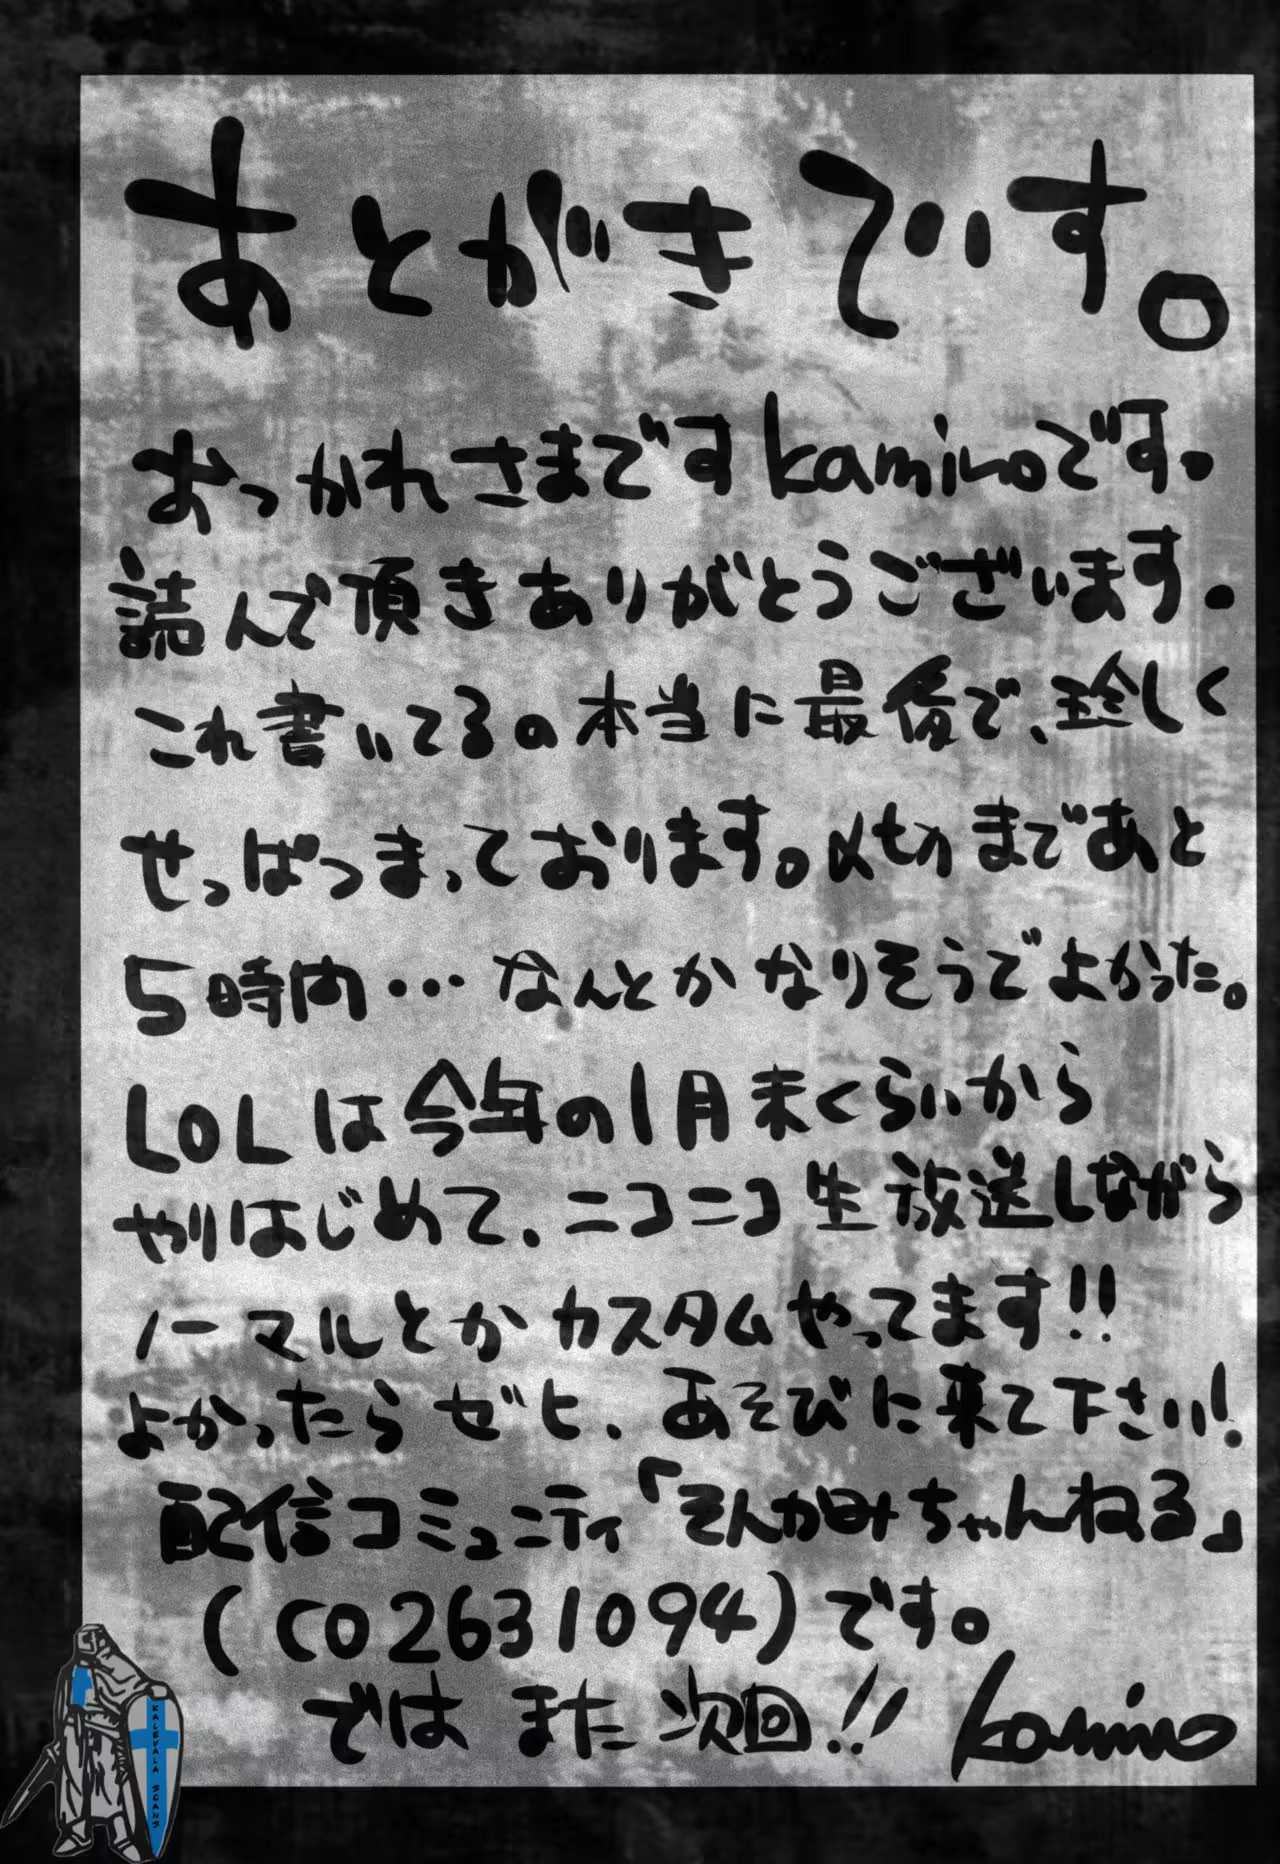 あとがきでいす。
おつかれさまですkaminoです。
読んで頂きありがとうございます。
これ書いてるの本当に最後で、珍しく
せっぱつまっております。〆切まであと
5時間…なんとかなりそうでよかった。
LOLは今年の1月末くらいから
やりはじめて、ニコニコ生放送しながら
ノーマルとかカスタムやってます!!
よかったらゼヒ、あそびに来て下さい!
配信コミュニティ「そんかみちゃんねる」
(CO2631094)です。
ではまた次回!! kamino
KALEVALA SCANS